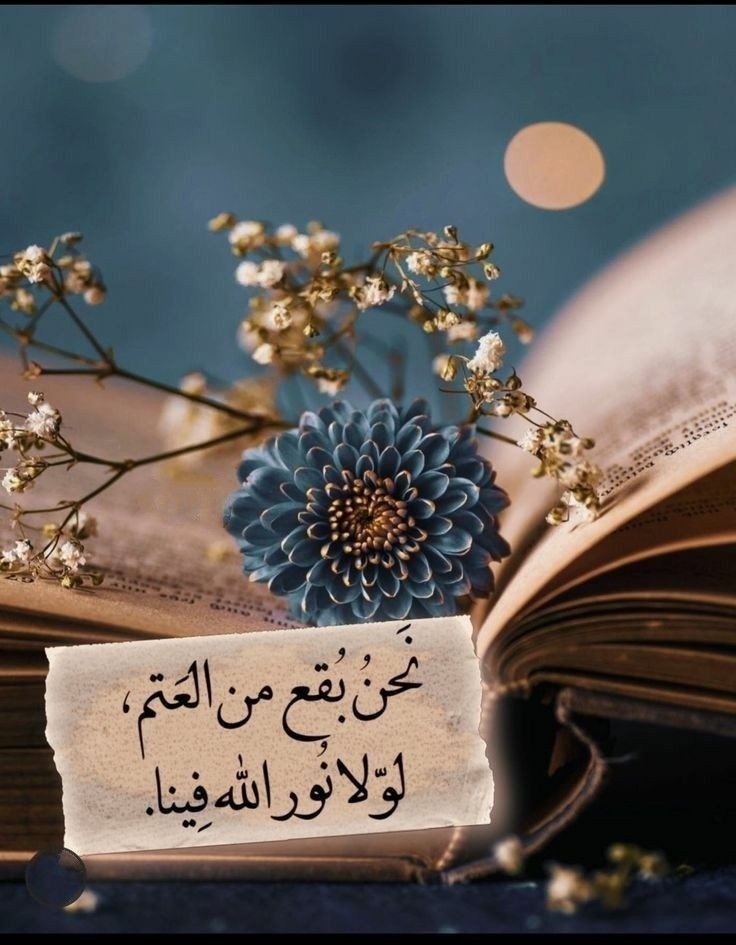 نَحنُ بُقع من العَتم،
لوّلا نُور الله فِينا.